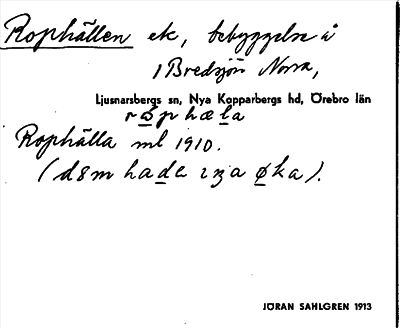 Rophällen ek, bebyggelse å
/ Bredsjön Norra,
Ljusnarsbergs sn, Nya Kopparbergs hd, Örebro län
Rophälla ml 1910.
JÖRAN SAHLGREN 1913